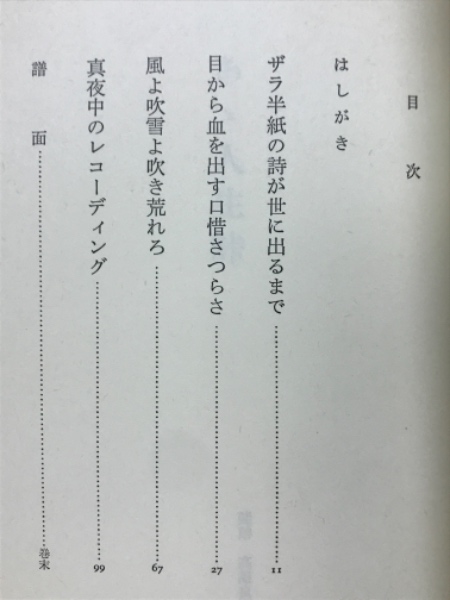 目次
はしがき
ザラ半紙の詩が世に出るまで……………………11
目から血を出す口惜さつらさ……………………27
風よ吹雪よ吹き荒れろ……………………67
真夜中のレコーディング……………………99
譜面……………………巻末